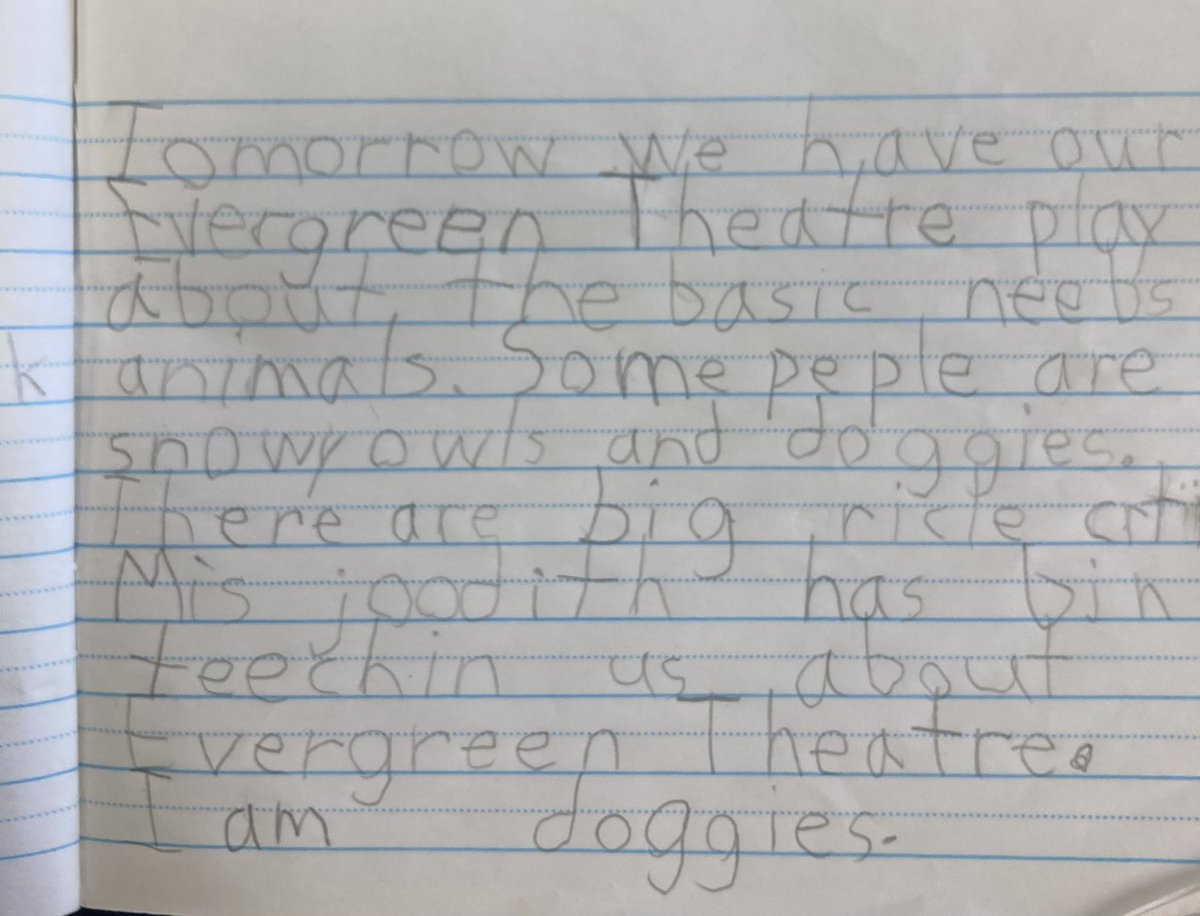 Tomorrow We have our
Evergreen Theatre play
about the basic needs
k animals. Some peple are
snowy owls and doggies.
There are big ricle
Mis joodith has bin
teechin us about
Evergreen Theatre.
I am doggies.